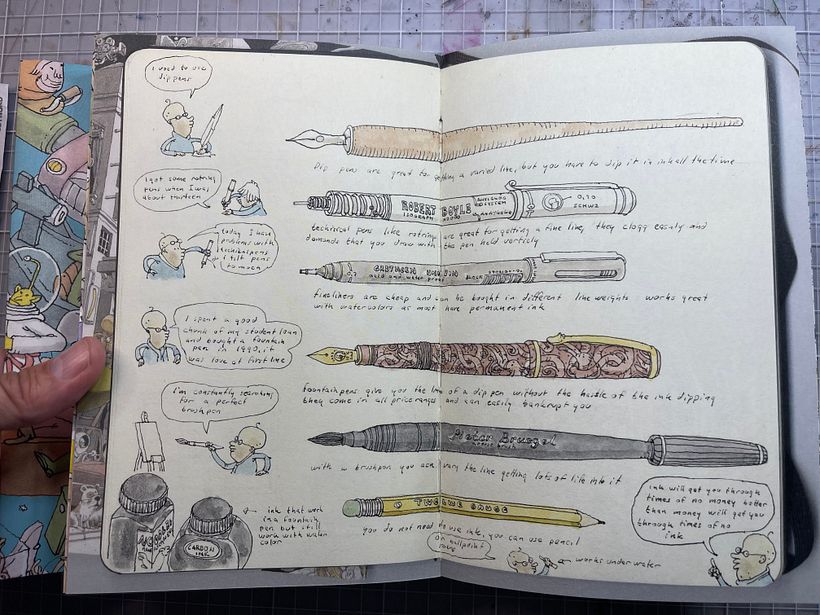 I used to use
dip pens
Dip pens are great for getting a varied line, but you have to dip it in ink all the time
I got some rotring
pens when I was
about thirteen
ROBERT BOYLE
ISOGRAPH
0,10
SCHWZ
technical pens like rotring are great for getting a fine line, they clogg easily and
demands that you draw with the pen held verticly
today I have
problems with
technical pens
I tilt pens
to much
acid and water proof
BLACK
fineliners are cheap and can be bought in different line weights. works great
with watercolors as most have permanent ink
I spent a good
chunk of my student loan
and bought a fountain
pen in 1990, it
was love at first line
fountain pens give you the line of a dip pen without the hassle of the ink dipping
they come in all price ranges and can easily bankrupt you
I'm constantly searching
for a perfect
brushpen
Pieter Bruegel
brush
with a brushpen you can vary the line getting lots of life into it
TWELVE GAUGE
you do not need to use ink, you can use pencil
or ballpoint
works underwater
ink that work
in a fountain
pen but still
work with water
color
CARBON
INK
ink will get you through
times of no money better
than money will get you
through times of no
ink